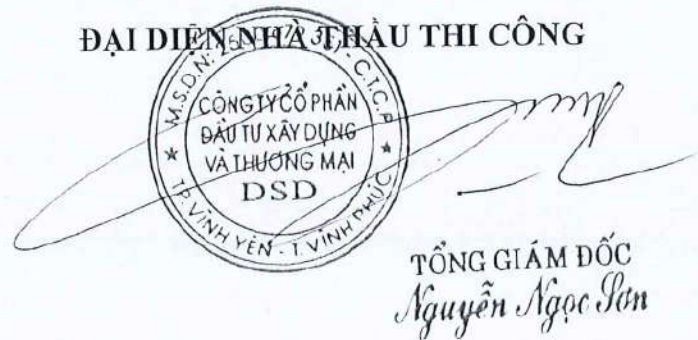 ĐẠI DIỆN NHÀ THẦU THI CÔNG
M.S.D.N: - C.T.C.P
CÔNG TY CỔ PHẦN
ĐẦU TƯ XÂY DỰNG
VÀ THƯƠNG MẠI
DSD
TP. VĨNH YÊN - T. VĨNH PHÚC
TỔNG GIÁM ĐỐC
Nguyễn Ngọc Sơn